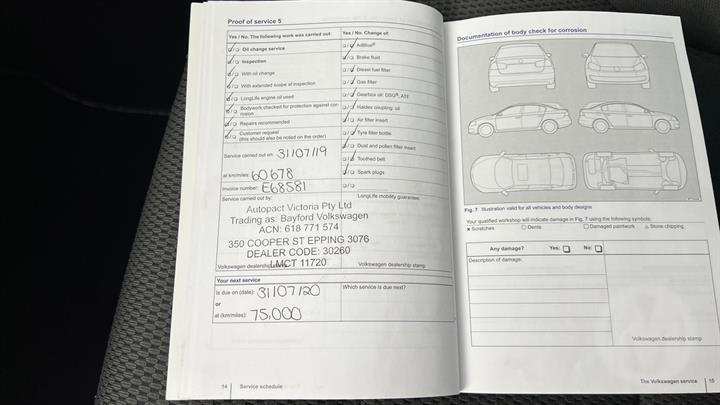 Proof of service 5
Yes / No. The following work was carried out:
Oil change service
Inspection
With oil change
With extended scope of inspection
LongLife engine oil used
Bodywork checked for protection against cor-
rosion
Repairs recommended
Customer request
(this should also be noted on the order)
Service carried out on: 31/07/19
at km/miles: 60678
Invoice number: E68581
Service carried out by:
Autopact Victoria Pty Ltd
Trading as: Bayford Volkswagen
ACN: 618 771 574
350 COOPER ST EPPING 3076
DEALER CODE: 30260
LMCT 11720
Volkswagen dealership
Yes / No. Change of:
AdBlue®
Brake fluid
Diesel fuel filter
Gas filter
Gearbox oil: DSG®, ATF
Haldex coupling: oil
Air filter insert
Tyre filler bottle
Dust and pollen filter insert
Toothed belt
Spark plugs
LongLife mobility guarantee:
Volkswagen dealership stamp
Your next service
Is due on (date): 31/07/20
or
at (km/miles): 75,000
Which service is due next?
14 Service schedule
Documentation of body check for corrosion
Fig. 7 Illustration valid for all vehicles and body designs
Your qualified workshop will indicate damage in Fig. 7 using the following symbols:
× Scratches ○ Dents □ Damaged paintwork △ Stone chipping
Any damage? Yes: □ No: □
Description of damage:
Volkswagen dealership stamp
The Volkswagen service 15